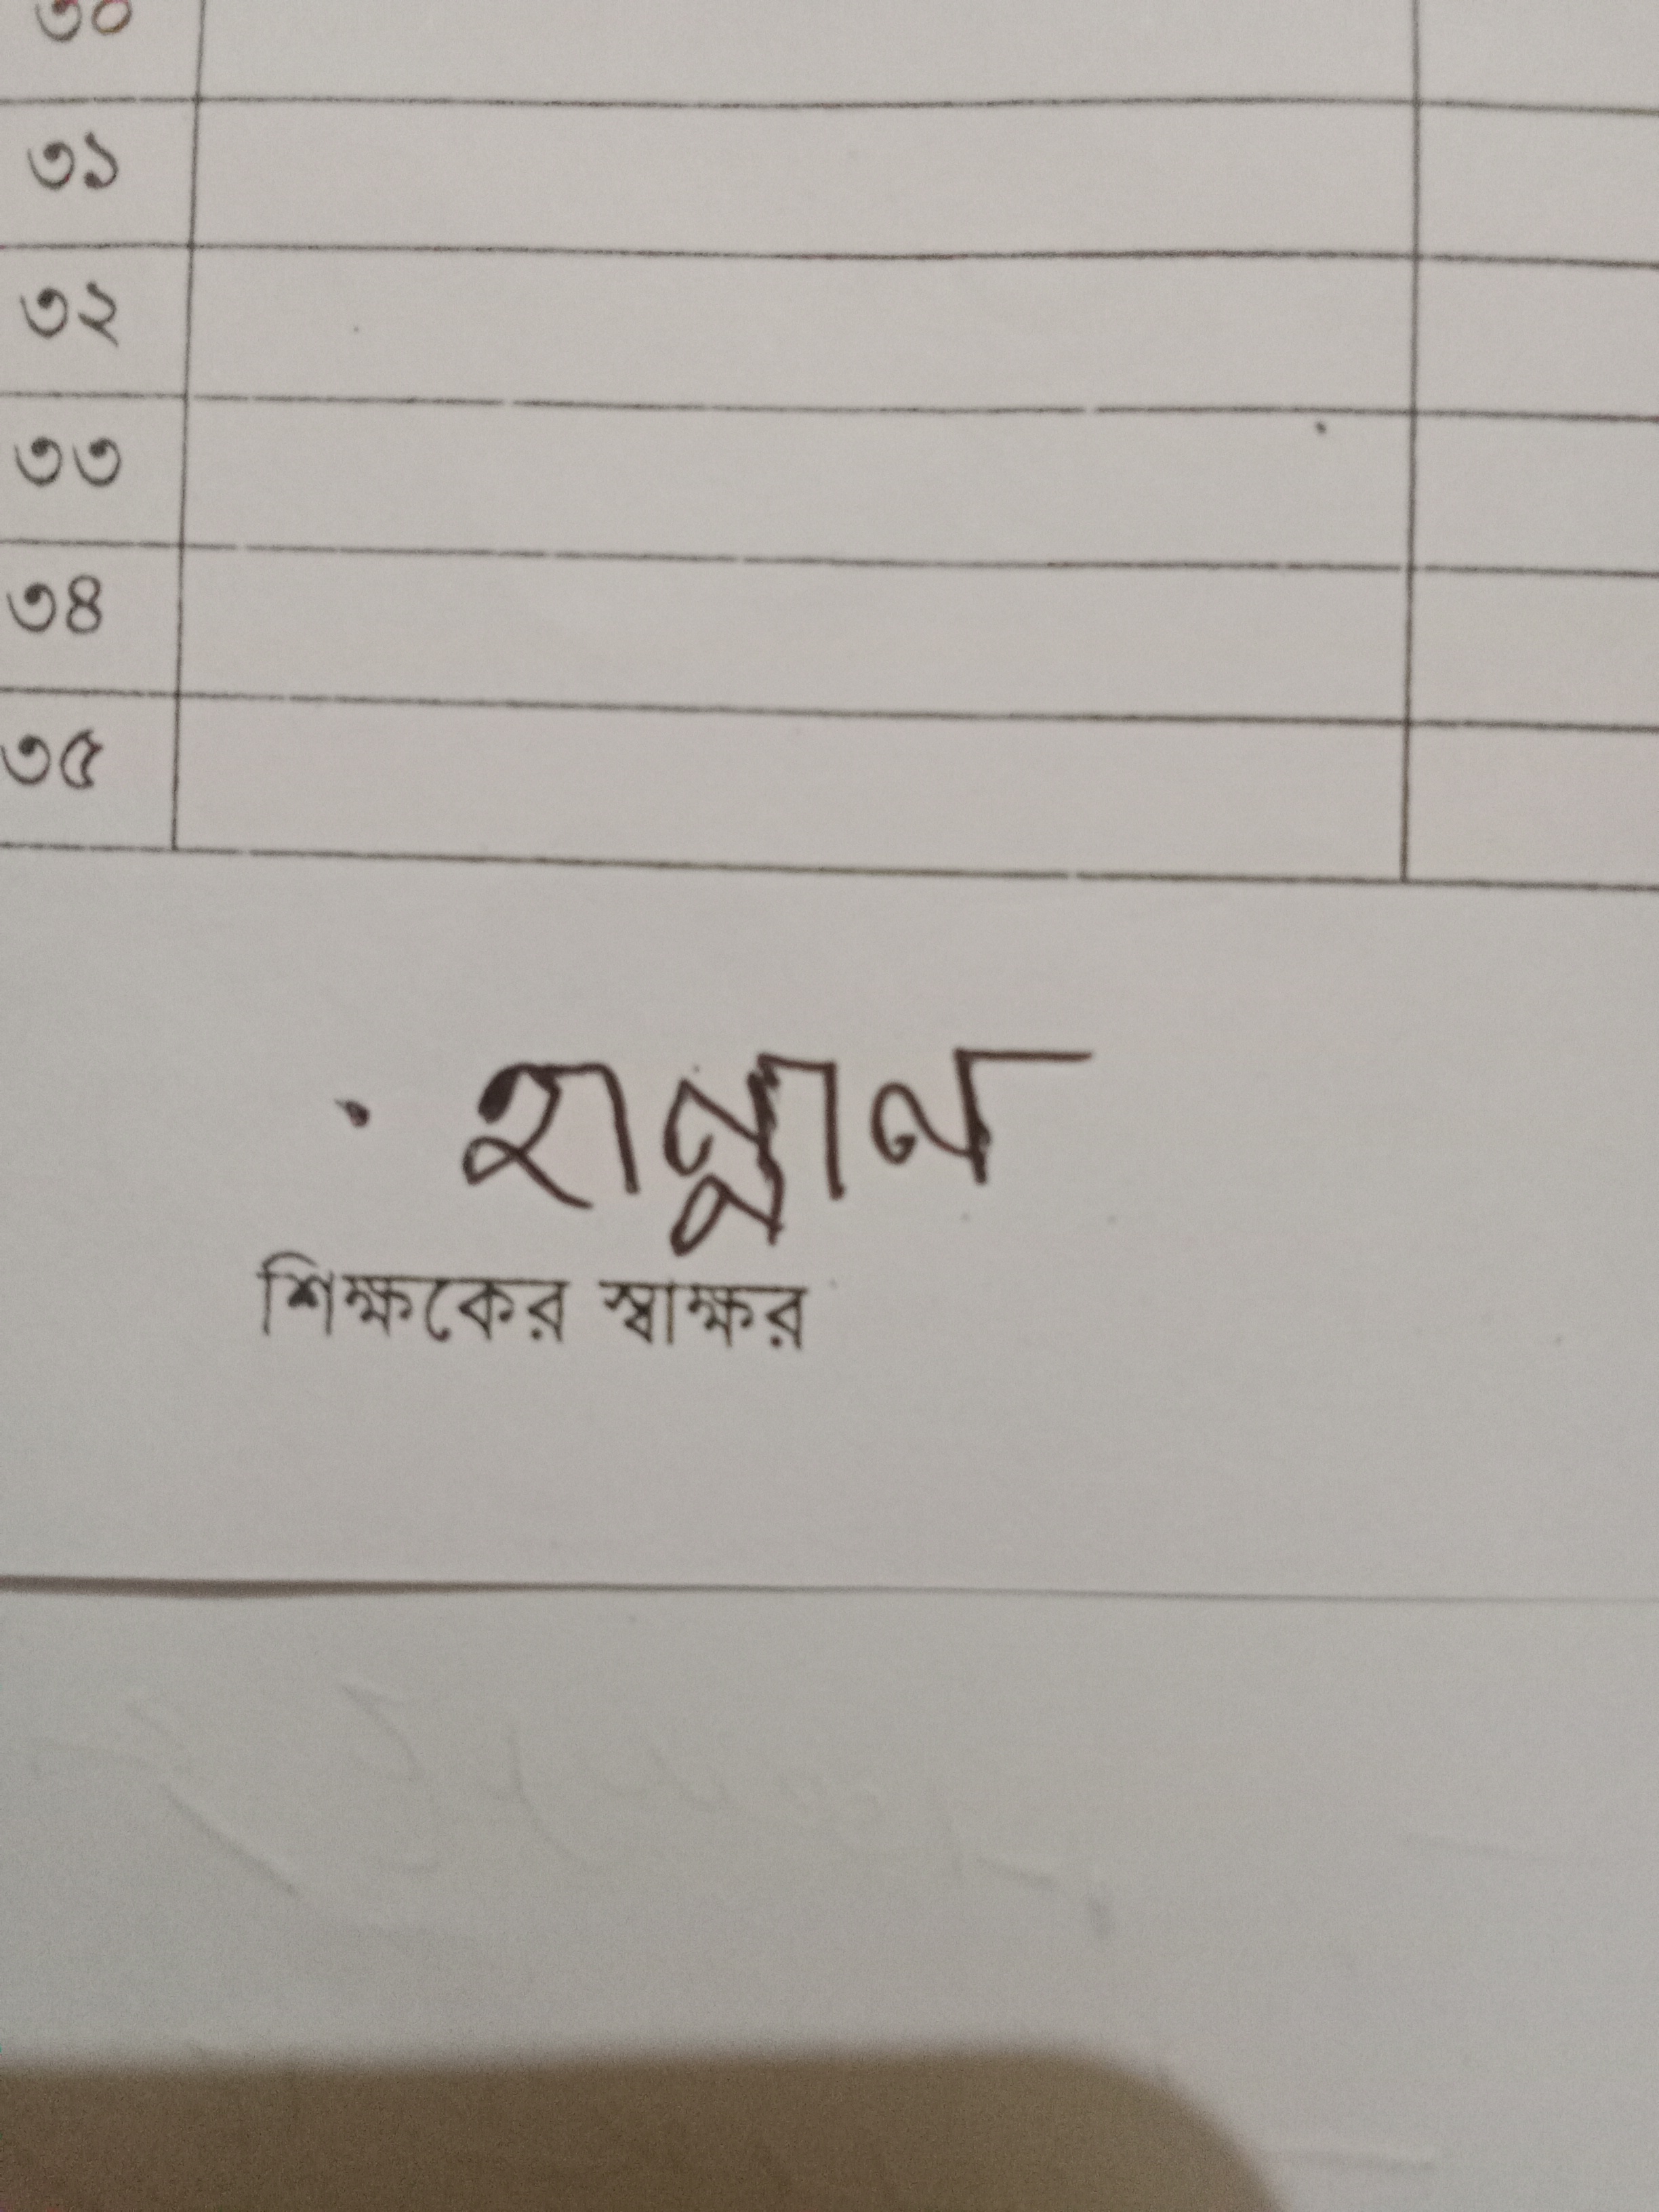 ৩০
৩১
৩২
৩৩
৩৪
৩৫
হান্নান
শিক্ষকের স্বাক্ষর